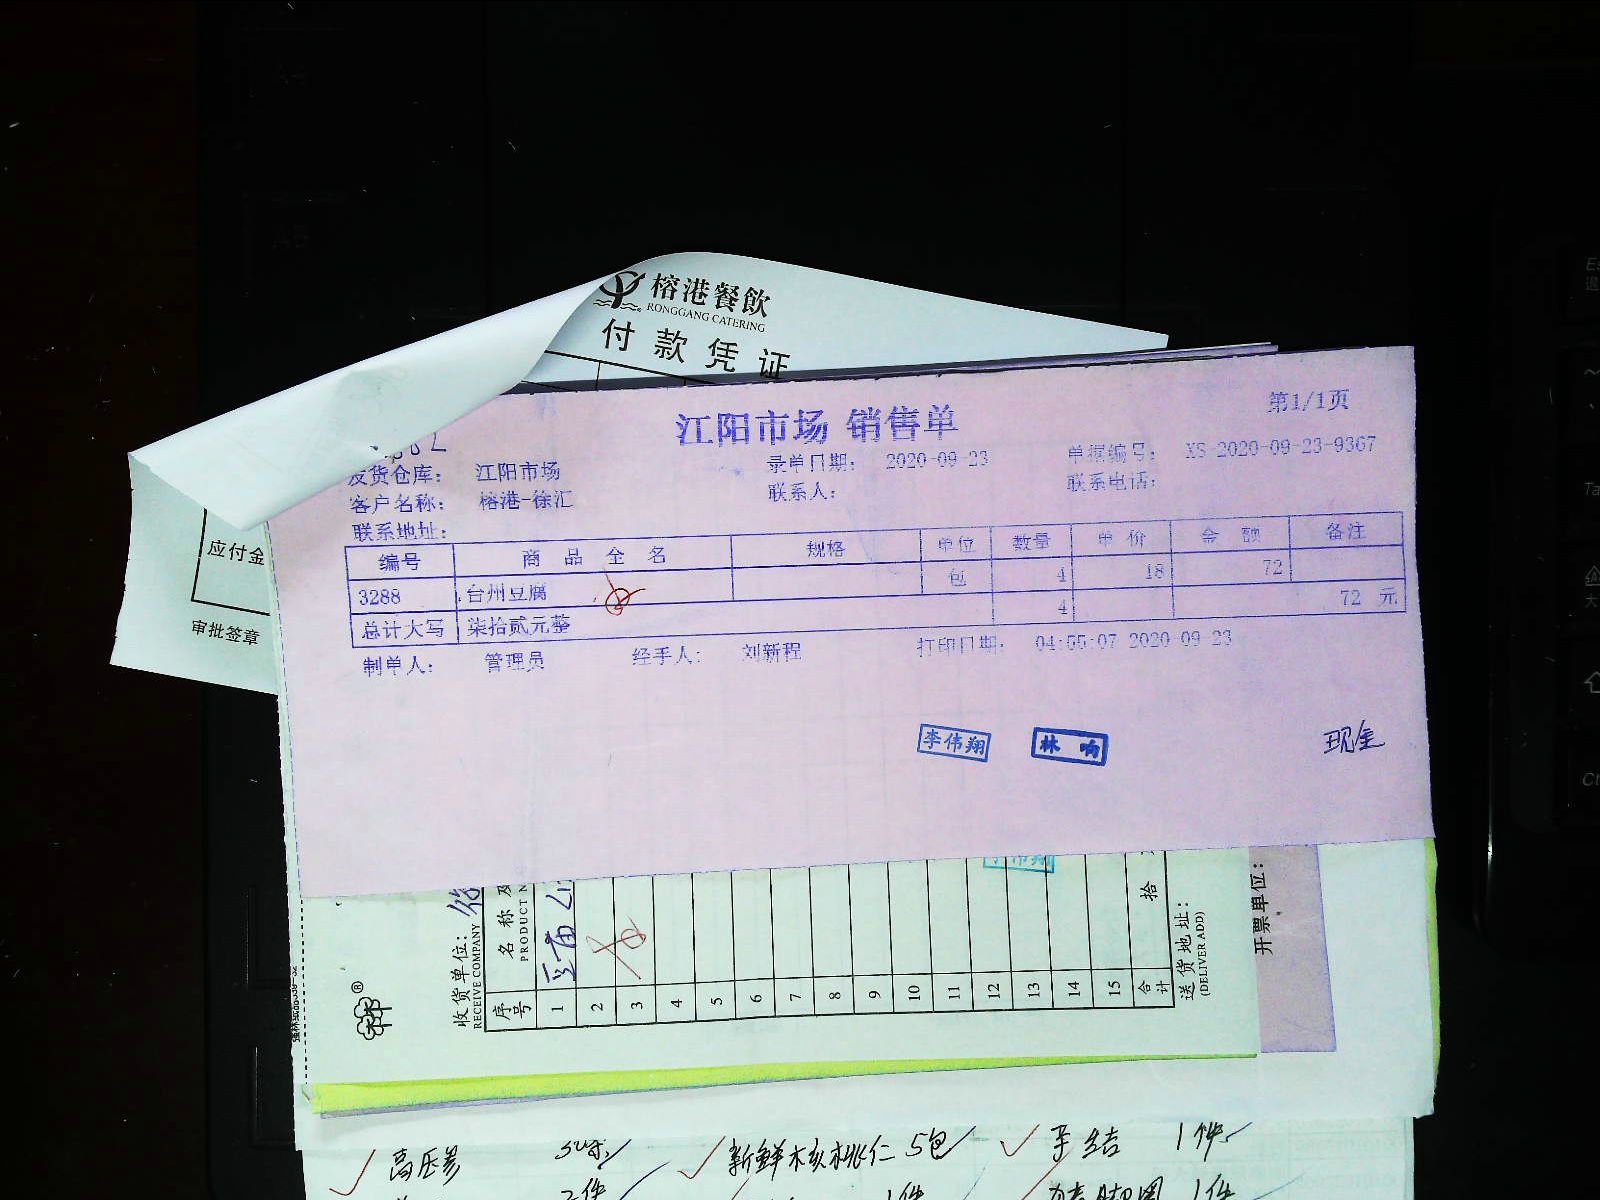 榕港餐飲
RONGGANG CATERING
付款凭证
江阳市场 销售单
第1/1页
发货仓库: 江阳市场 录单日期: 2020-09-23 单据编号: XS-2020-09-23-9367
客户名称: 榕港-徐汇 联系人: 联系电话:
联系地址:
编号 商品全名 规格 单位 数量 单价 金额 备注
3288 台州豆腐 包 4 18 72
总计大写 柒拾贰元整 4 72 元
制单人: 管理员 经手人: 刘新程 打印日期: 04:55:07 2020-09-23
应付金
审批签章
李伟翔 林响 现金
收货单位:
RECEIVE COMPANY
序号 名称及
PRODUCT N
1
2
3
4
5
6
7
8
9
10
11
12
13
14
15
合计 拾
送货地址:
(DELIVER ADD)
开票单位:
新鲜核桃仁 5包 1件
1件